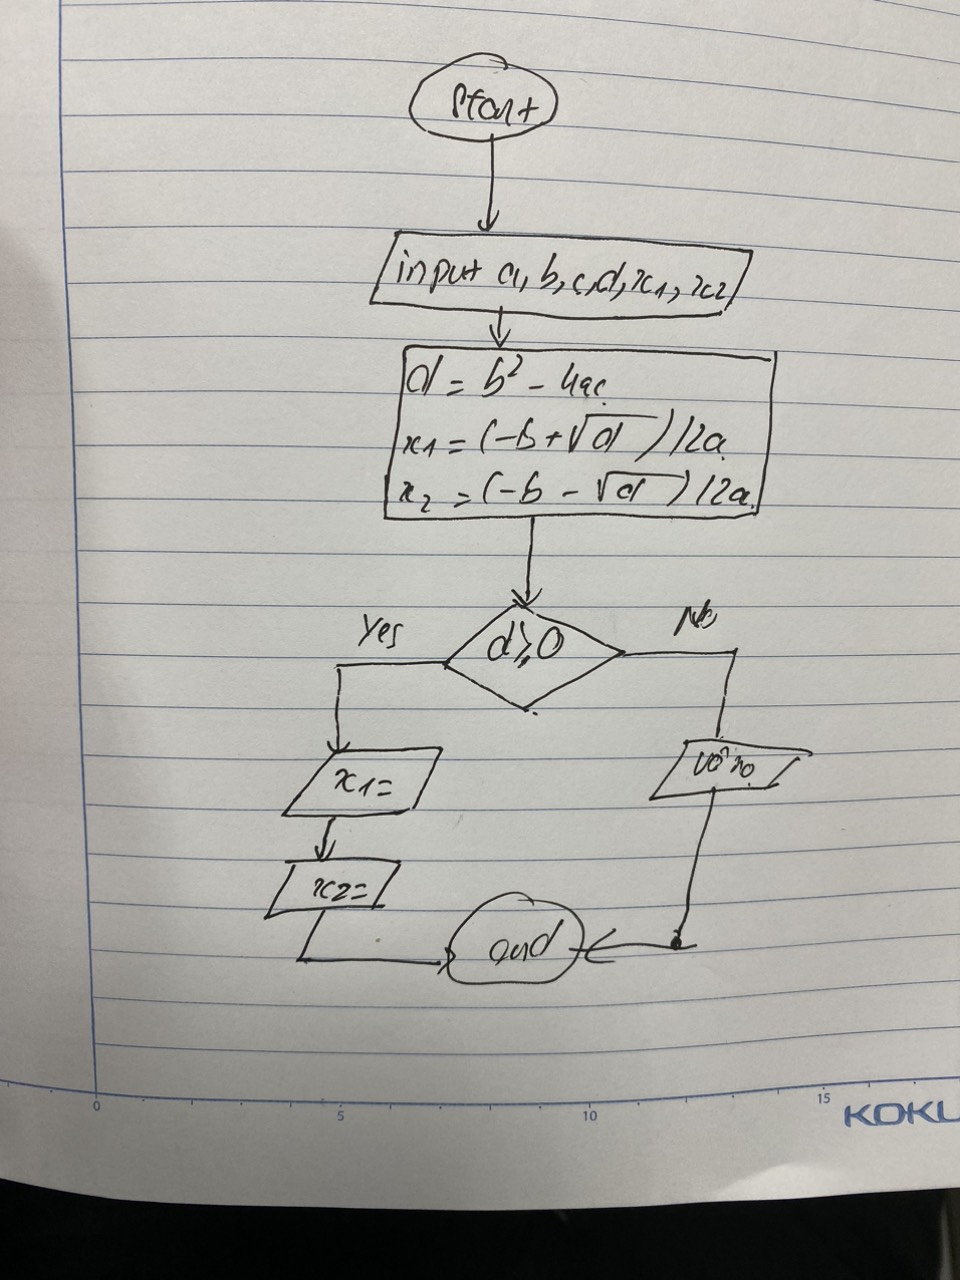 Start
input a, b, c, d, x1, x2
d = b² - 4ac
x1 = (-b + √d )/2a
x2 = (-b - √d )/2a
Yes
d ≥ 0
No
x1=
vô no
x2=
end
0 5 10 15
KOKU